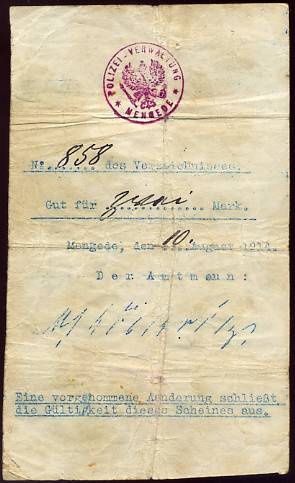 POLIZEI-VERWALTUNG
* MENGEDE *
No. 858 des Verzeichnisses.
Gut für zwei Mark.
Mengede, den 10. August 1914.
Der Amtmann:
Eine vorgenommene Aenderung schließt
die Gültigkeit dieses Scheines aus.